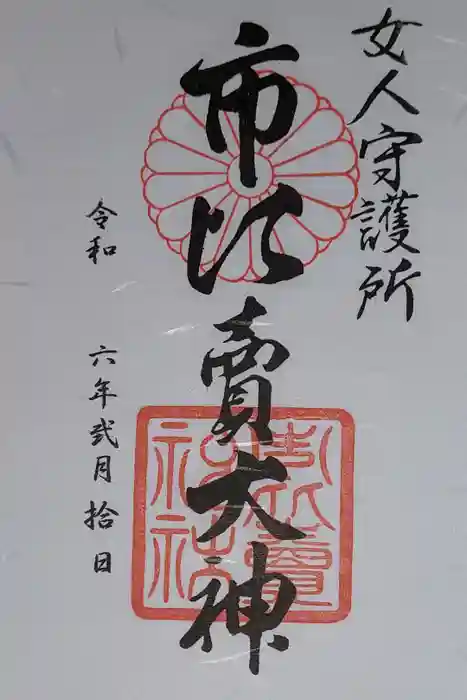 女人守護所
市比賣大神
市比賣神社
令和六年弐月拾日